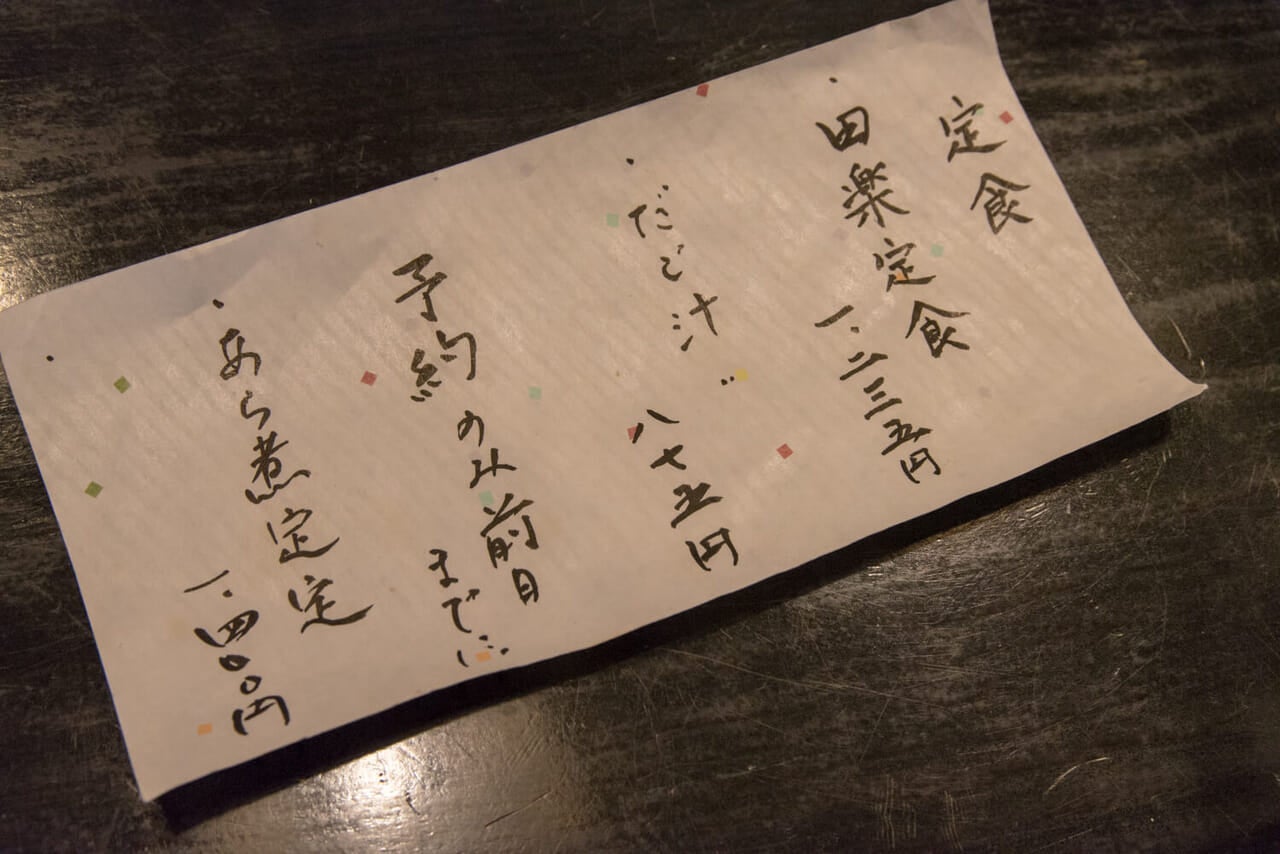 定食
・田楽定食
一、二三五円
・だご汁〃
八十五円
予約のみ前日
までに
・あら煮定定
一、四〇〇円
・